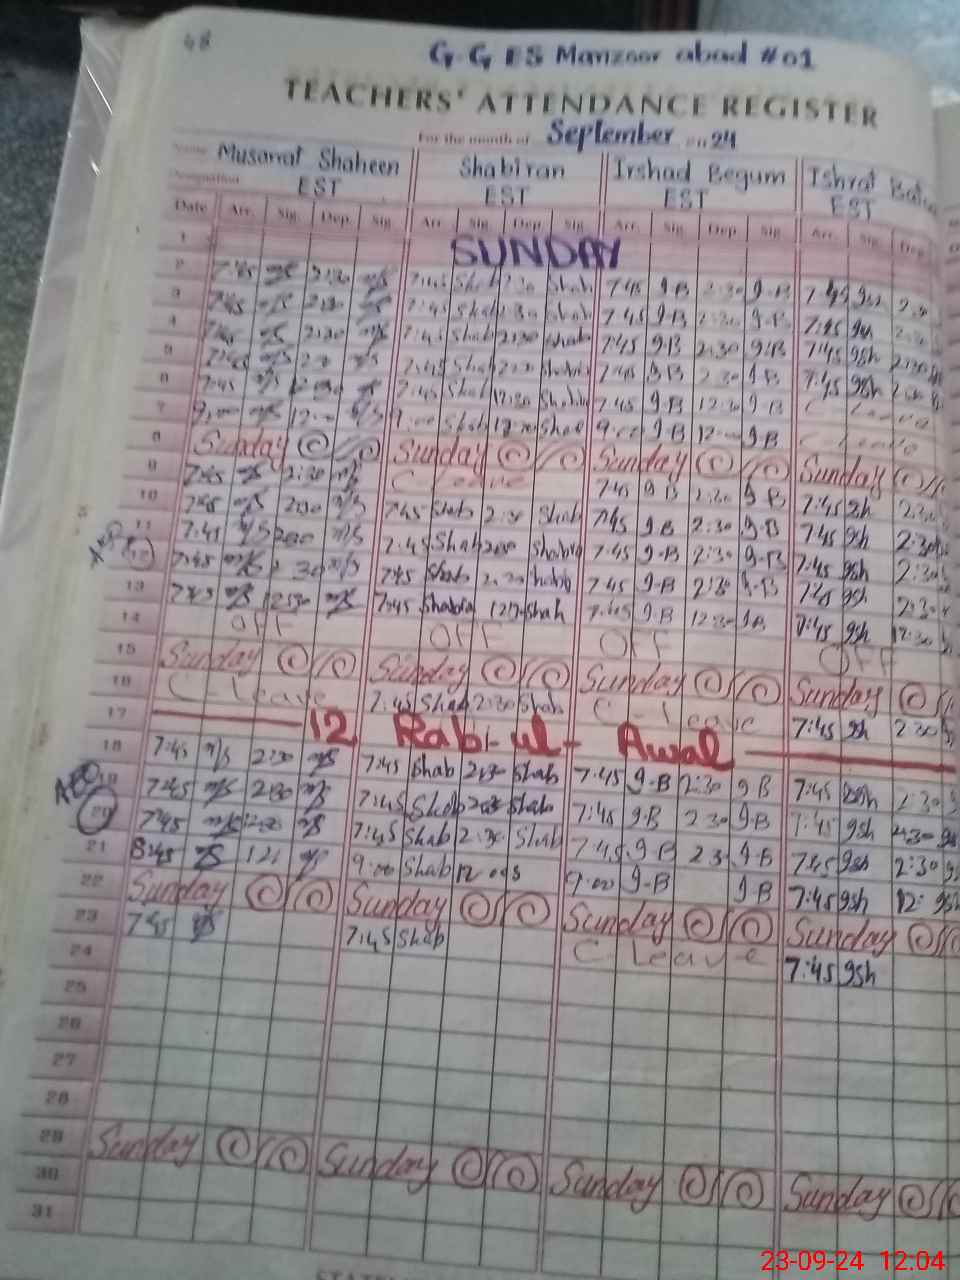 48
G.G ES Manzoor abad #01
TEACHERS' ATTENDANCE REGISTER
For the month of September 24
Name Musarat Shaheen Shabiran Irshad Begum Ishrat
EST EST EST EST
Date Arr. Sig. Dep. Sig. Arr. Sig. Dep. Sig. Arr. Sig. Dep. Sig. Arr. Sig. Dep.
1 SUNDAY
2 7:45 m/S 2:30 m/S 7:45 Shab 2:30 Shab 7:45 9-B 2:30 9-B 7:45 9sh 2:30
3 7:45 m/S 2:30 7:45 Shab 2:30 Shab 7:45 9-B 2:30 9-B 7:45 9sh
4 7:45 m/S 2:30 m/S 7:45 Shab 2:30 Shab 7:45 9-B 2:30 9-B 7:45 9sh 2:30
5 7:45 m/S m/S 7:45 Shab 7:45 9-B 2:30 9-B 7:45 9sh
6 7:45 m/S 7:45 Shab 12:30 7:45 9-B 12:30 9-B C Leave
7 9:00 m/S 12:00 9:00 Shab 9:00 9-B 12:00 9-B C Leave
8 Sunday Sunday Sunday Sunday
9 7:45 m/S 2:30 m/S C leave 7:45 9 B 2:30 9 B 7:45 9sh 2:30
10 7:45 m/S 230 m/S 7:45 Shab 2:30 Shab 7:45 9B 2:30 9-B 7:45 9sh 2:30
11 7:45 m/S m/S 7:45 Shab 7:45 9-B 2:30 9-B 7:45 9sh 2:30
12 7:45 m/S 2 30 m/S 7:45 Shab 7:45 9-B 2:30 9-B 7:45 9sh 2:30
13 7:45 m/S 1230 m/S 7:45 Shab Shab 7:45 9-B 12:30 9B 7:45 9sh 12:30
14 OFF OFF OFF OFF
15 Sunday Sunday Sunday Sunday
16 C-leave 7:45 Shab 2:30 Shab C leave 7:45 9sh 2 30
17 12 Rabi-ul-Awal
18 7:45 m/S 2:30 m/S 7:45 Shab 2:30 Shab 7:45 9-B 2:30 9B 7:45 9sh 2:30
19 7:45 m/S 2:30 m/S 7:45 Shab Shab 7:45 9-B 2 30 9-B 7:45 9sh 2:30 9sh
20 7:45 m/S m/S 7:45 Shab 2:30 Shab 7:45 9-B 2 3 9-B 7:45 9sh 2:30
21 8:45 9:00 Shab 12 9:00 9-B 9B 7:45 9sh 12: 9sh
22 Sunday Sunday Sunday Sunday
23 7:45 7:45 Shab C Leave 7:45 9sh
24
25
26
27
28
29 Sunday Sunday Sunday Sunday
30
31
23-09-24 12.04